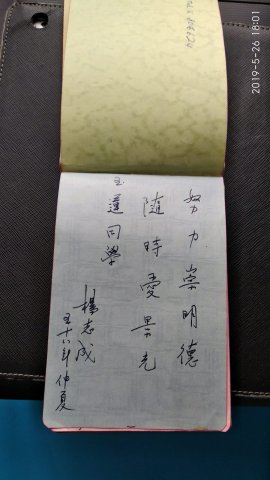 努力崇明德
隨時愛景光
玉蓮同學
楊志成
五十八年仲夏
2019-5-26 18:01